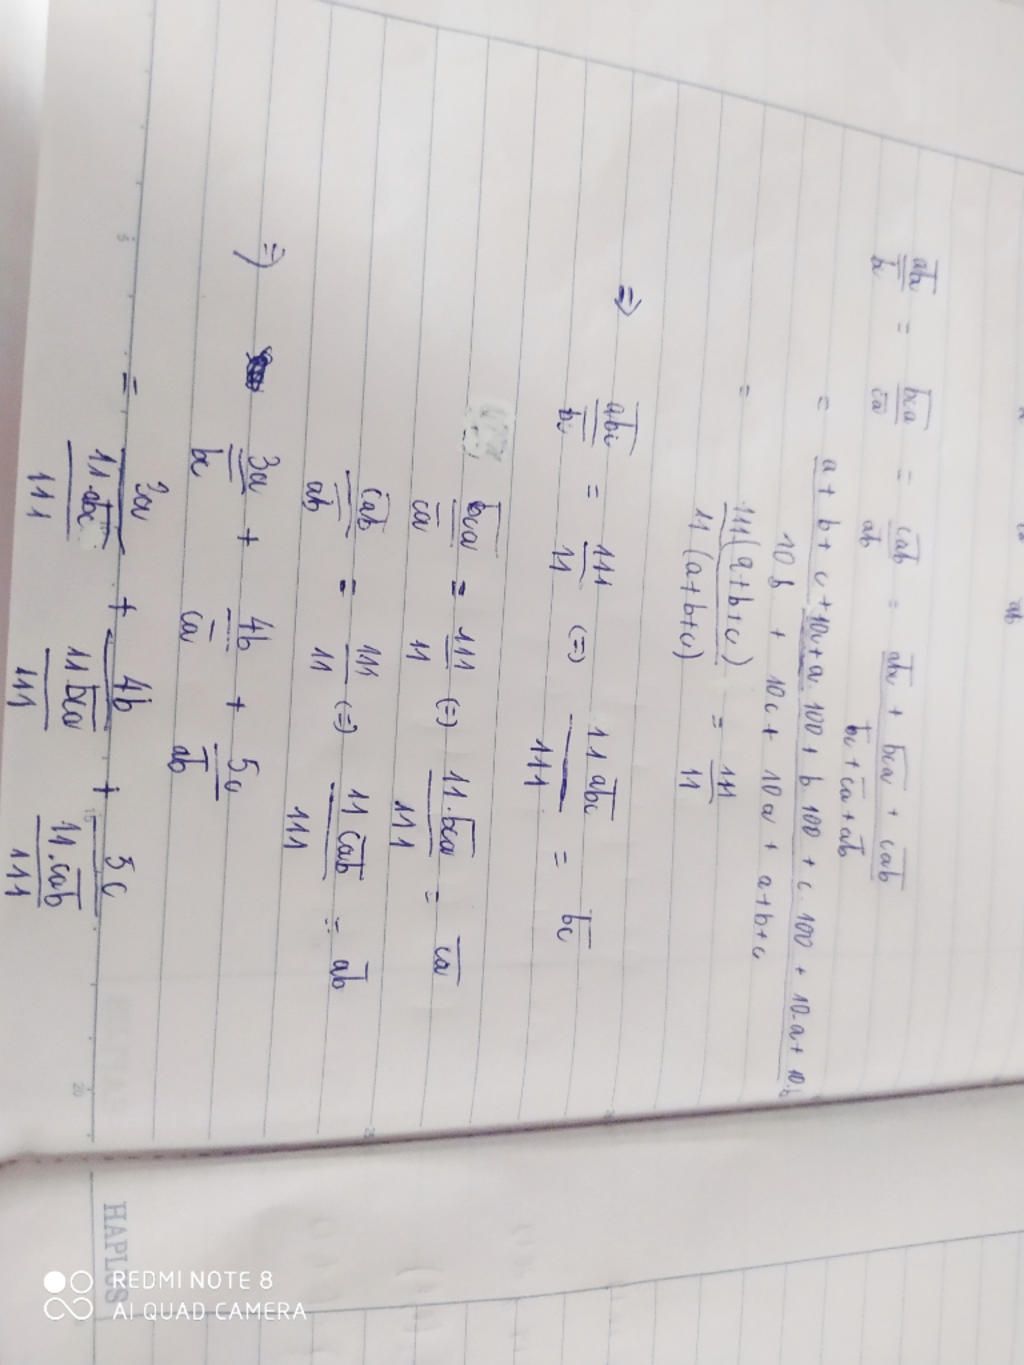 ab
abc/bc = bca/ca = cab/ab = abc + bca + cab / bc + ca + ab
= a + b + c + 10c + a.100 + b 100 + c.100 + 10.a + 10.b
10b + 10c + 10a + a+b+c
= 111(a+b+c) / 11(a+b+c) = 111/11
=> abc/bc = 111/11 (=) 11abc/111 = bc
bca/ca = 111/11 (=) 11.bca/111 = ca
cab/ab = 111/11 (=) 11cab/111 = ab
=) 3a/bc + 4b/ca + 5c/ab
= 3a / 11.abc/111 + 4b / 11bca/111 + 5c / 11.cab/111
5
15
20
25
HAPLUS
REDMI NOTE 8
AI QUAD CAMERA